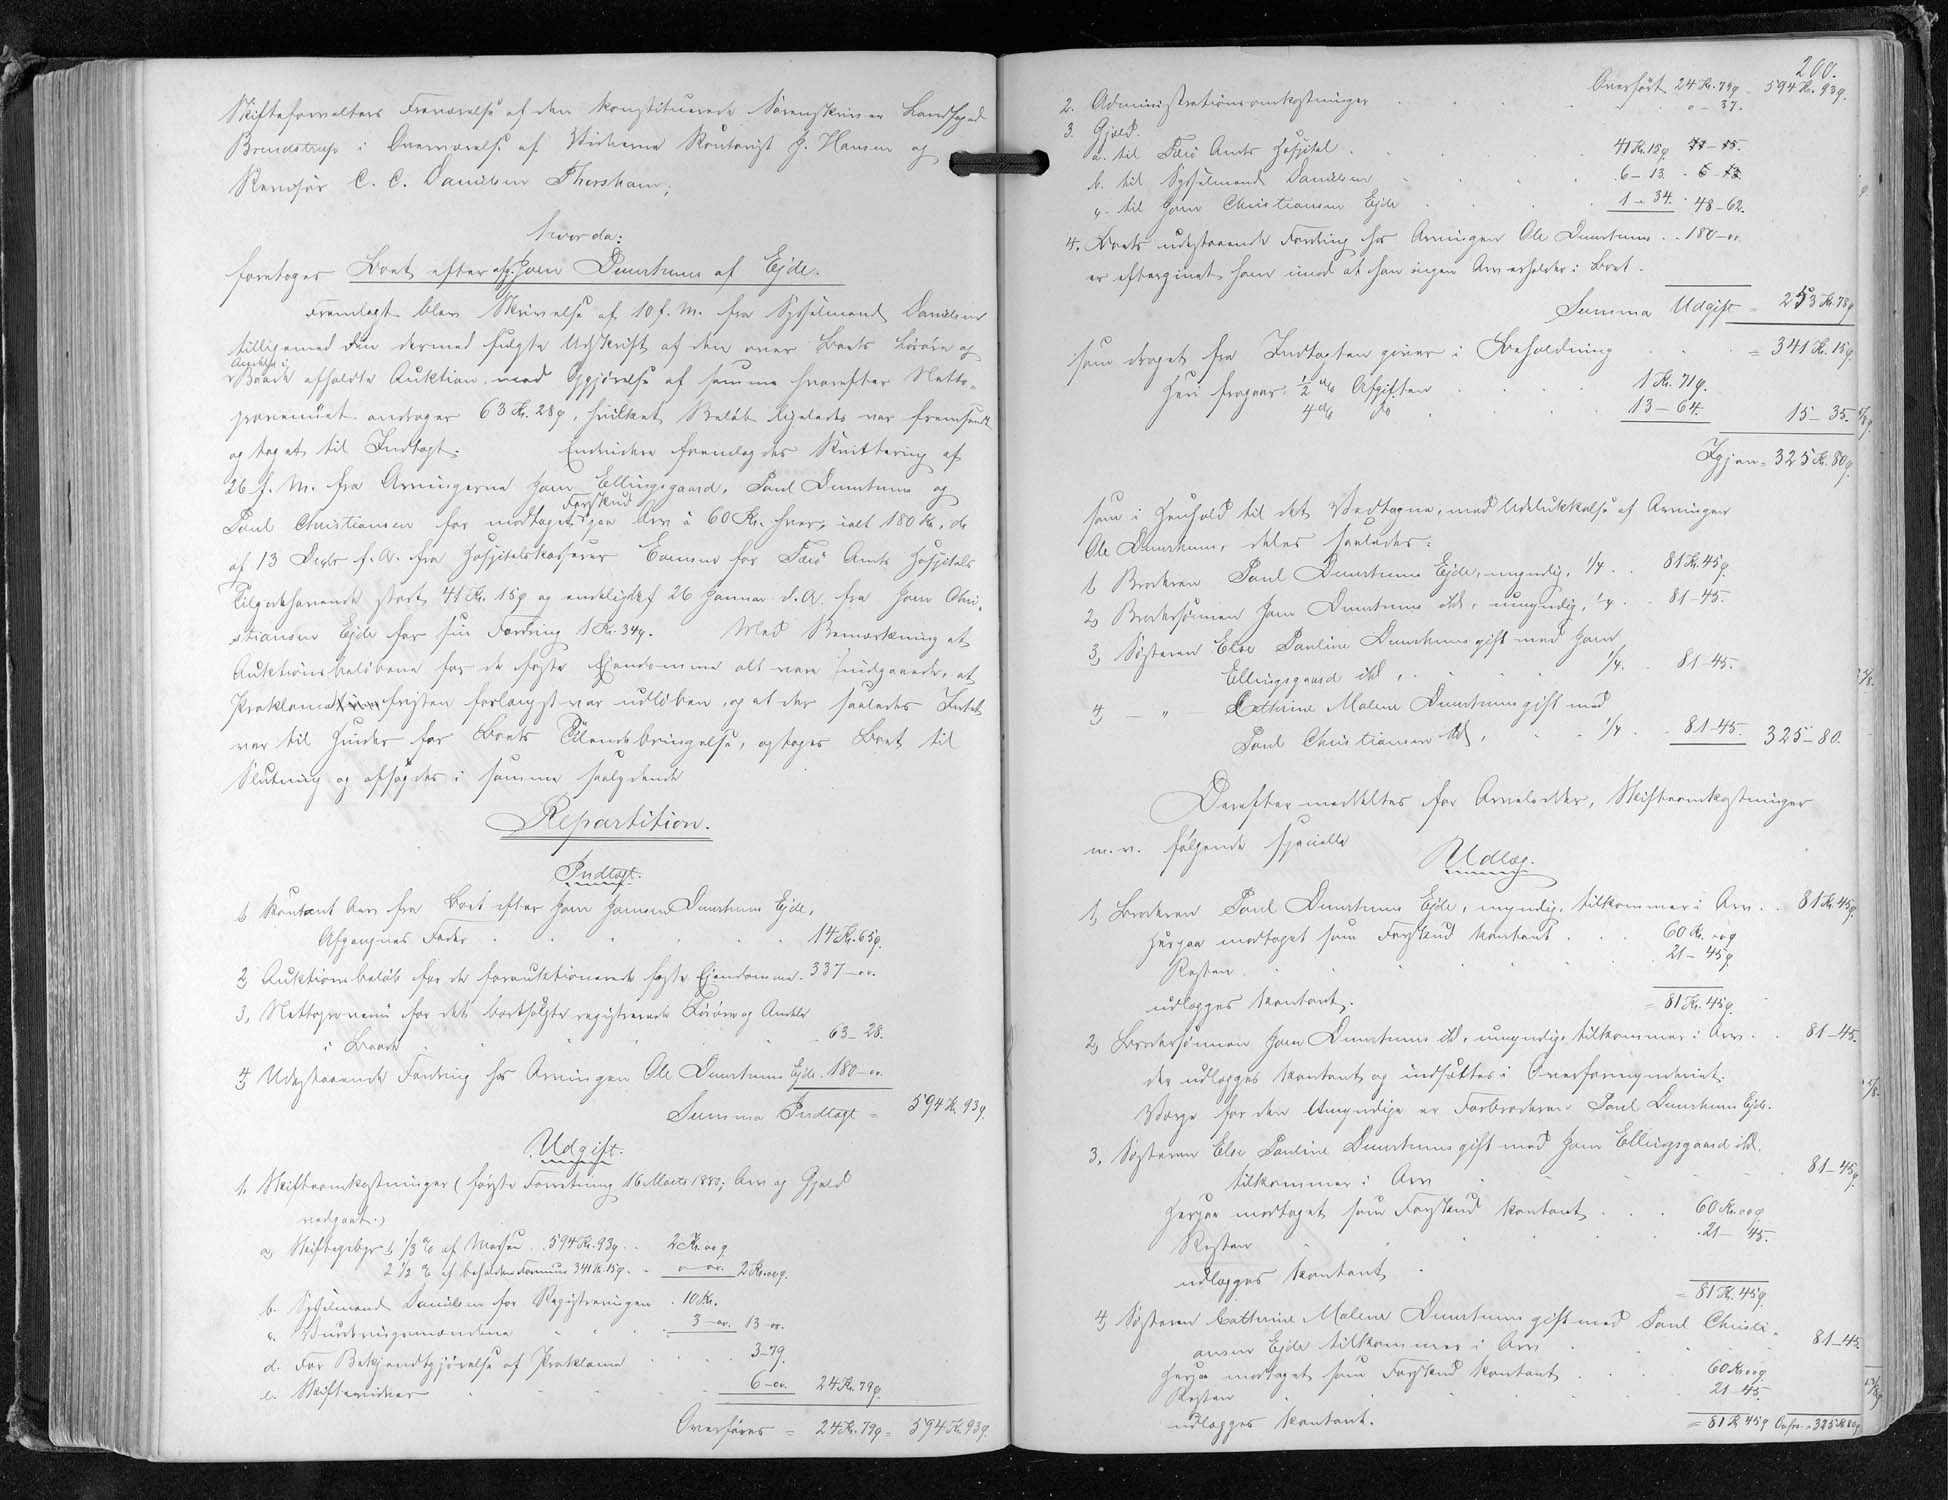 Skifteforvalters Fraværelse af den konstituerede Sorenskriver Landfoged
Brendstrup i Overværelse af Vidnerne Kontorist J. Hansen og
Revisor C. C. Danielsen Thorshavn,
hvorda:
foretoges Boet efter afg. Joen Duurhuus af Ejde.
Fremlagt blev Skrivelse af 10 f. M. fra Sysselmand Danielsen
tilligemed den dermed fulgte Udskrift af den over Boets Løsøre og
Andele i
Baade afholdte Auktion med Opgjørelse af samme hvorefter Netto-
provenuet andrager 63 Kr. 28 ø, hvilket Beløb ligeledes var fremsendt
og taget til Indtægt. Endvidere fremlagdes Kvittering af
26 f. M. fra Arvingerne Joen Ellingsgaard, Poul Duurhuus og
Forskud
Poul Christiansen for modtaget paa Arv à 60 Kr. hver, ialt 180 Kr., do
af 13 Decbr f. A. fra Hospitalskasserer for Færø Amts Hospitals
Tilgodehavende stort 41 Kr. 15 ø og endelig do af 26 Januar d. A. fra Joen Chri-
stiansen Ejde for sin Fordring 1 Kr. 34 ø. Med Bemærkning at
Auktionsbeløbene for de faste Ejendomme alt vare indgaaede, at
Proklamafristen forlængst var udløben, og at der saaledes Intet
var til Hinder for Boets Tilendebringelse, optoges Boet til
Slutning og afsagdes i samme saalydende
Repartition.
Indtægt.
1, Kontant Arv fra Boet efter Joen Joensen Duurhuus Ejde,
Afgangnes Fader 14 Kr. 65 ø.
2, Auktionsbeløb for de forauktionerede faste Ejendomme 337 - "
3, Nettoprovenu for det bortsolgte registrerede Løsøre og Andele
i Baade 63 - 28.
4, Udestaaende Fordring hos Arvingen Ole Duurhuus Ejde 180 - "
Summa Indtægt = 594 Kr. 93 ø.
Udgift.
1. Skifteomkostninger (første Forretning 16 Marts 1880; Arv og Gjæld
vedgaaet.)
a, Skiftegebyr 1/3 % af Massen 594 Kr. 93 ø 2 Kr. 00 ø
2 1/2 % af beholden Formue 341 Kr. 15 ø 2 Kr. 00 ø.
b. Sysselmand Danielsen for Registreringen 10 Kr.
c. Vurderingsmændene 3 - " 13 - "
d. For Bekjendtgjørelse af Proklama 3 - 79.
e. Skiftevidner 6 - " 24 Kr. 79 ø.
Overføres = 24 Kr. 79 ø = 594 Kr. 93 ø.
200.
Overført 24 Kr. 79 ø = 594 Kr. 93 ø.
2. Administrationsomkostninger " - 37.
3. Gjæld.
a. til Færø Amts Hospital 41 Kr. 15 ø 41 - 15.
b. til Sysselmand Danielsen 6 - 13. 6 - 13
c. til Joen Christiansen Ejde 1 - 34. 48 - 62.
4. Boets udestaaende Fordring hos Arvingen Ole Duurhuus 180 - "
er eftergivet ham imod at han ingen Arv erholder i Boet.
Summa Udgift = 253 Kr. 78 ø
som draget fra Indtægten giver i Beholdning = 341 Kr. 15 ø.
Heri fragaar: 1/2 % Afgiften 1 Kr. 71 ø.
4 % do 13 - 64. 15 - 35.
Igjen = 325 Kr. 80 ø.
som i Henhold til det Vedtagne, med Udelukkelse af Arvingen
Ole Duurhuus, deles saaledes:
1, Broderen Poul Duurhuus Ejde, myndig, 1/4 81 Kr. 45 ø.
2, Brodersønnen Joen Duurhuus ibd, umyndig, 1/4 81 - 45.
3, Søsteren Else Pauline Duurhuus gift med Joen
Ellingsgaard ibd, 1/4 81 - 45.
4, - " - Cathrine Malene Duurhuus gift med
Poul Christiansen ibd, 1/4 81 - 45. 325 - 80.
Derefter meddeltes for Arvelodder, Skifteomkostninger
m. v. følgende specielle
Udlæg.
1, Broderen Poul Duurhuus Ejde, myndig, tilkommer i Arv 81 Kr. 45 ø.
Herpaa modtaget som Forskud kontant 60 Kr. 00 ø
Resten 21 - 45 ø.
udlægges kontant. = 81 Kr. 45 ø.
2, Brodersønnen Joen Duurhuus ibd, umyndig, tilkommer i Arv 81 - 45.
der udlægges kontant og indsættes i Overformynderiet.
Værge for den Umyndige er Farbroderen Poul Duurhuus Ejde.
3, Søsteren Else Pauline Duurhuus gift med Joen Ellingsgaard ibd.
tilkommer i Arv 81 - 45 ø.
Herpaa modtaget som Forskud kontant 60 Kr. 00 ø
Resten 21 - 45.
udlægges kontant = 81 Kr. 45 ø.
4, Søsteren Cathrine Malene Duurhuus gift med Poul Christi-
ansen Ejde tilkommer i Arv 81 - 45.
Herpaa modtaget som Forskud kontant 60 Kr. 00 ø
Resten 21 - 45.
udlægges kontant. = 81 Kr 45 ø Ovfr. = 325 Kr 80 ø